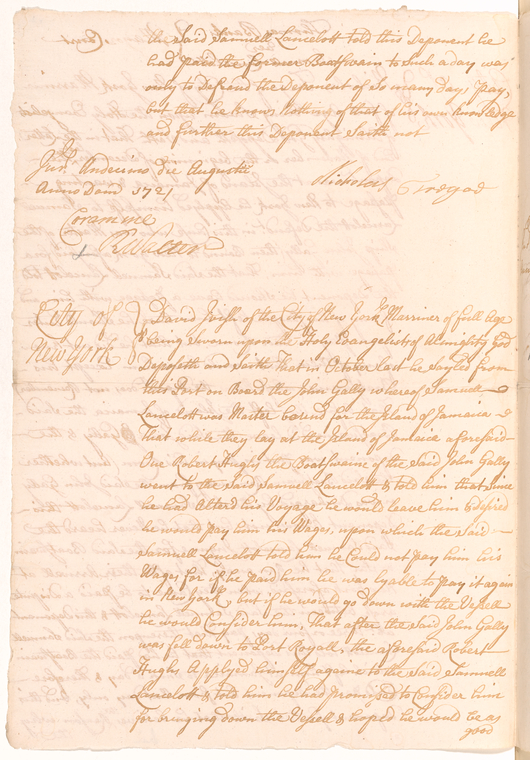 the said Samuell Lancelott told this Deponent he
had paid the former Boatswain to Such a day was
only to Defraud the Deponent of So many days pay,
but that he knows Nothing of that of his own knowledge
and further this Deponent Saith not
Jur. Undecimo die Augusti
Anno Dom 1721
Nicholas
Coram me
R Walter
City of
New York
David Wish of the City of New York Marriner of full Age
being Sworn upon the Holy Evangelists of Almighty God
Deposeth and Saith That in October last he Sayled from
this Port on Board the John Gally whereof Samuell
Lancelott was Master bound for the Island of Jamaica
That while they lay at the Island of Jamaica aforesaid
One Robert Hughs the Boatswaine of the Said John Gally
went to the Said Samuell Lancelott & told him that since
he had Alterd his Voyage he would leave him & desired
he would pay him his Wages, upon which the Said
Samuell Lancelott told him he Could not pay him his
Wages, for if he paid him he was lyable to pay it again
in New York, but if he would go down with the Vessell
he would Consider him, That after the Said John Gally
was fell down to Port Royall, the aforesaid Robert
Hughs Applyed himself againe to the Said Samuell
Lancelott & told him he had promised to Consider him
for bringing down the Vessell & hoped he would be as
good